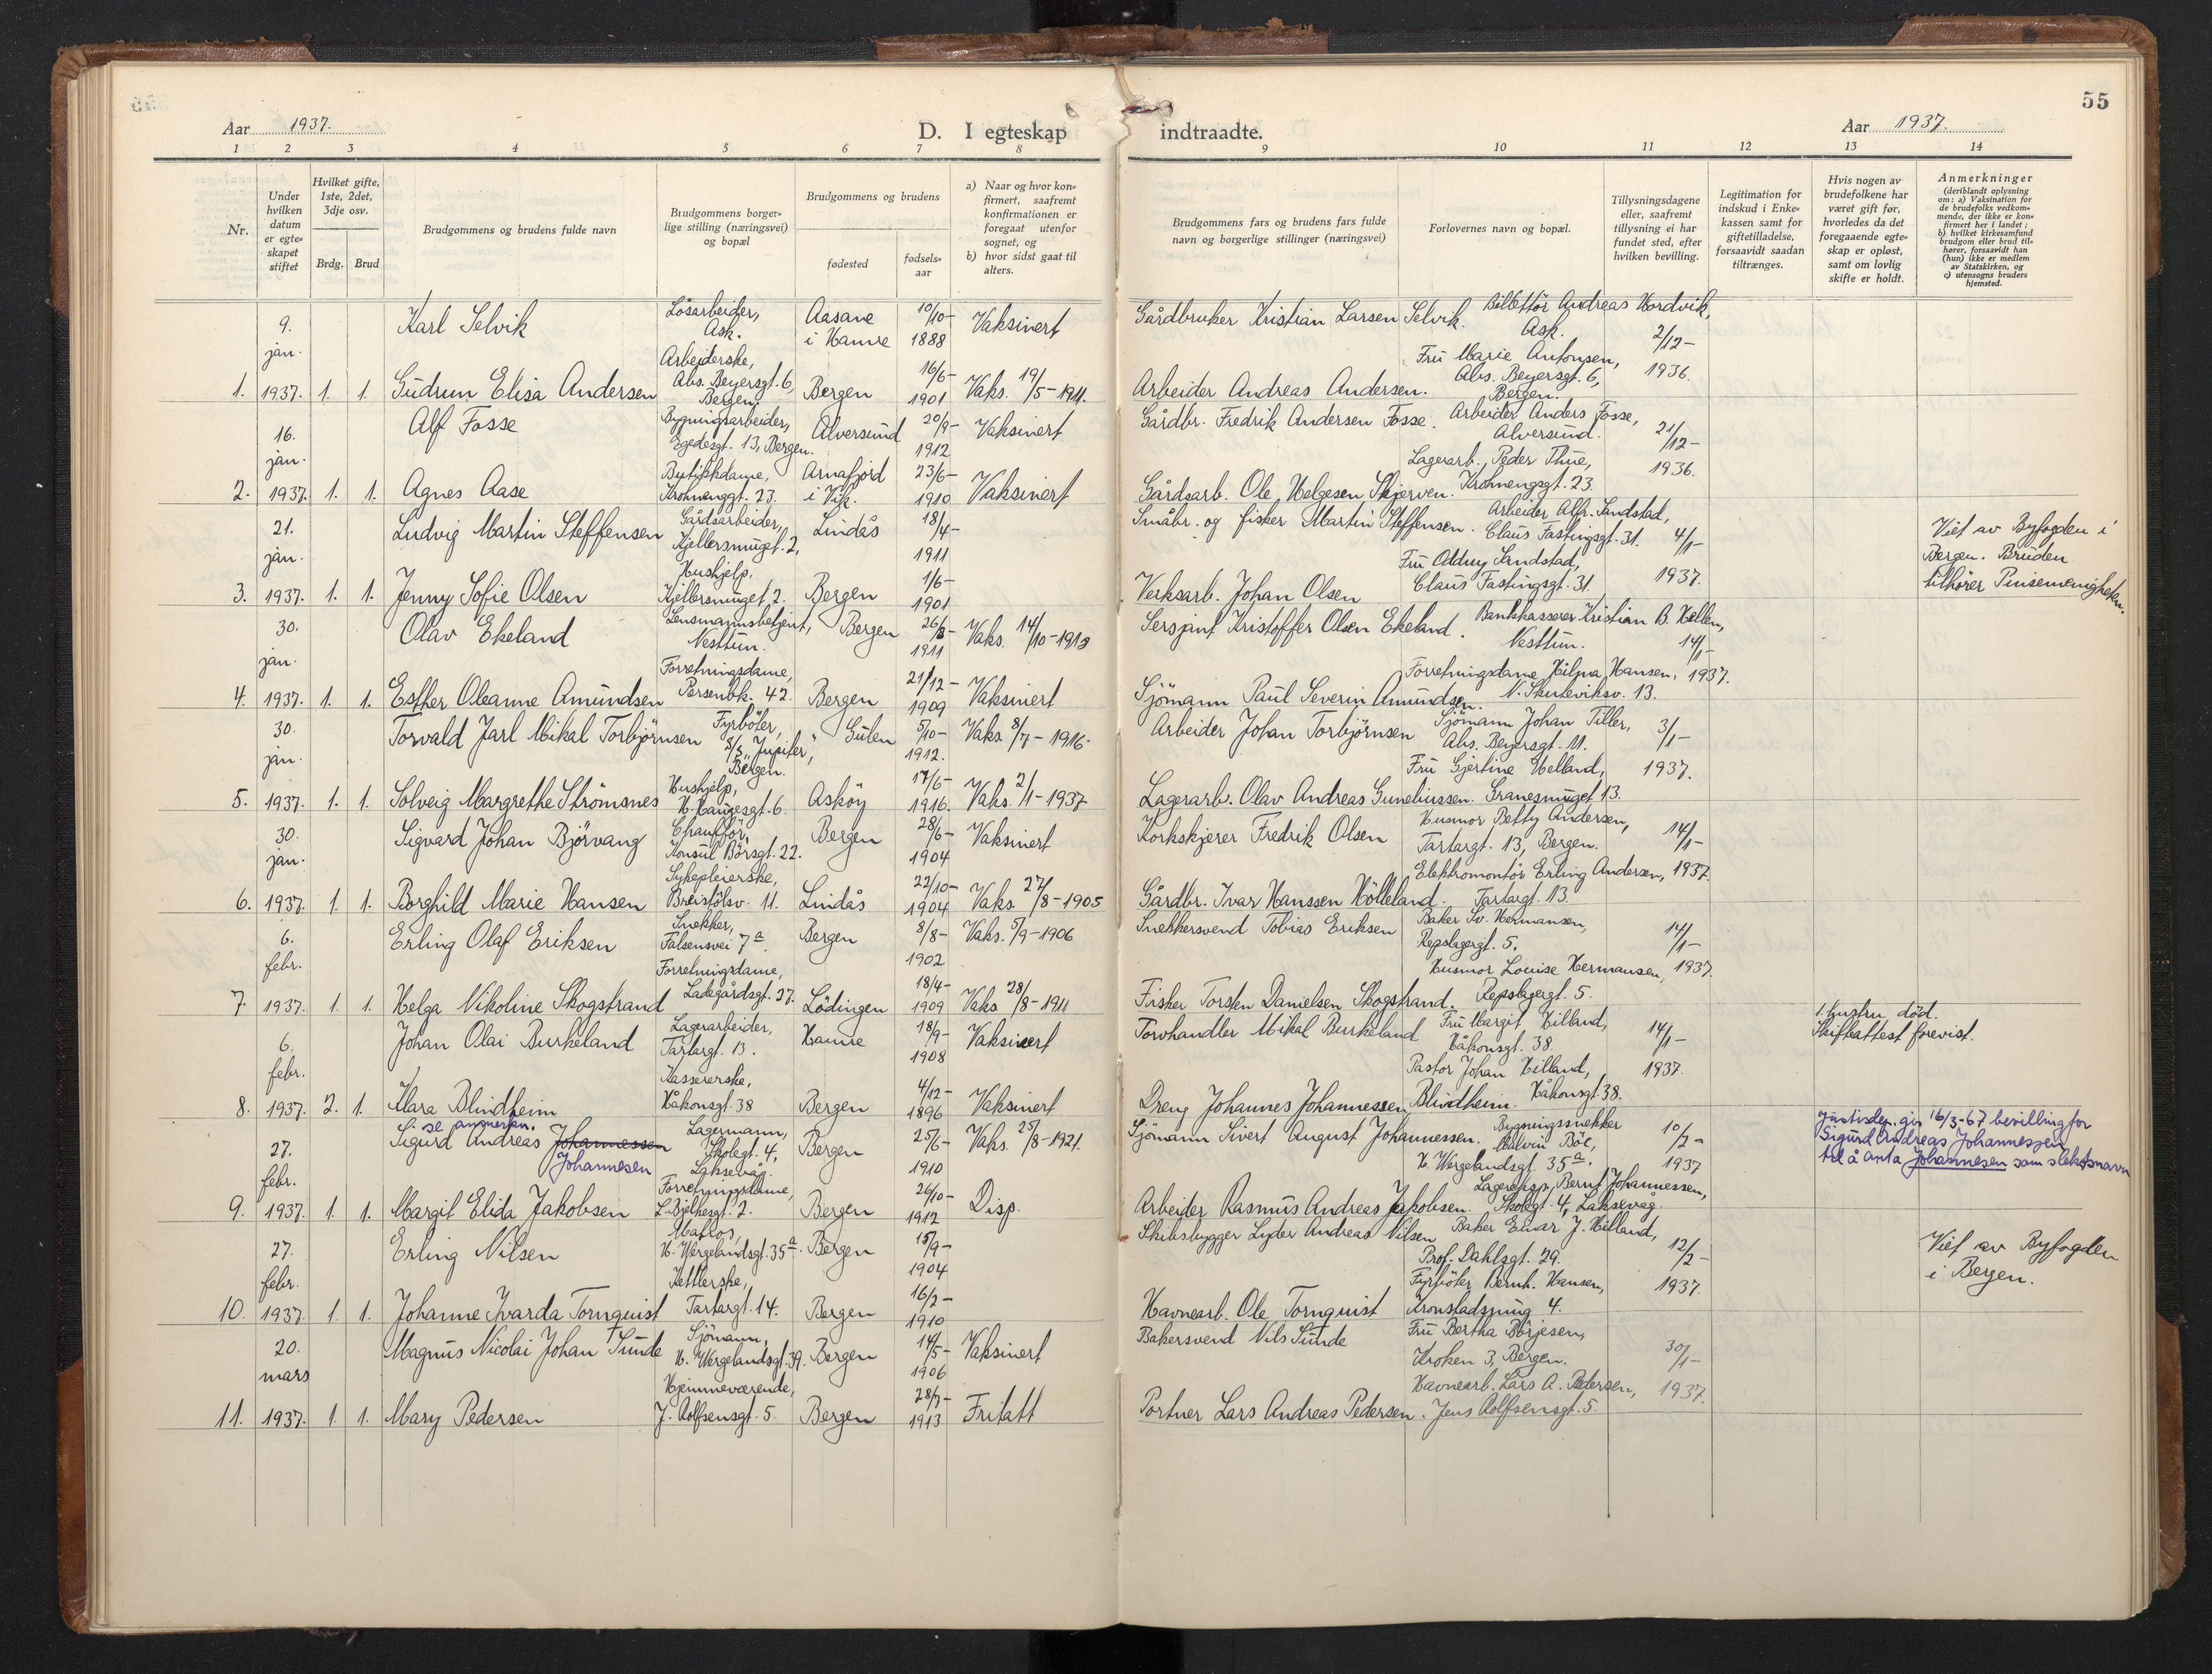 55
Aar 1937. D. I egteskap indtraadte. Aar 1937.
1 2 3 4 5 6 7 8 9 10 11 12 13 14
Nr.
Under hvilken datum er egte-skapet stiftet
Hvilket gifte, 1ste, 2det, 3dje osv.
Brdg. Brud
Brudgommens og brudens fulde navn
Brudgommens borger-lige stilling (næringsvei) og bopæl
Brudgommens og brudens
fødested
fødsels-aar
a) Naar og hvor kon-firmert, saafremt konfirmationen er foregaat utenfor sognet, og
b) hvor sidst gaat til alters.
Brudgommens fars og brudens fars fulde navn og borgerlige stillinger (næringsvei)
Forlovernes navn og bopæl.
Tillysningsdagene eller, saafremt tillysning ei har fundet sted, efter hvilken bevilling.
Legitimation for indskud i Enke-kassen samt for giftetilladelse, forsaavidt saadan tiltrænges.
Hvis nogen av brudefolkene har været gift før, hvorledes da det foregaaende egte-skap er opløst, samt om lovlig skifte er holdt.
Anmerkninger
(deriblandt oplysning om: a) Vaksination for de brudefolks vedkom-mende, der ikke er kon-firmert her i landet; b) hvilket kirkesamfund brudgom eller brud til-hører, forsaavidt han (hun) ikke er medlem av Statskirken, og c) utensogns bruders hjemsted.
1. 9. jan. 1937. 1. 1.
Karl Selvik Lösarbeider, Ask. Aasane i Hamre 10/10-1888 Vaksinert Gårdbruker Kristian Larsen Selvik. Billettör Andreas Hordvik, Ask. 2/12-1936.
Gudrun Elisa Andersen Arbeiderske, Abs. Beyersgt. 6, Bergen. Bergen 16/6-1901 Vaks. 19/5-1911. Arbeider Andreas Andersen. Fru Marie Antonsen, Abs. Beyersgt. 6, Bergen.
2. 16. jan. 1937. 1. 1.
Alf Fosse Bygningsarbeider, Egedesgt. 13, Bergen. Alversund 20/9-1912 Vaksinert Gårdbr. Fredrik Andersen Fosse. Arbeider Anders Fosse, Alversund. 21/12-1936.
Agnes Aase Butikkdame, Krohnenggt. 23. Arnafjord i Vik. 23/6-1910 Vaksinert Gårdsarb. Ole Helgesen Skjerven. Lagerarb. Peder Thue, Krohnengsgt. 23.
3. 21. jan. 1937. 1. 1.
Ludvig Martin Steffensen Gårdsarbeider, Kjellersmuget. 2, Lindås 18/4-1911 Småbr. og fisker Martin Steffensen. Arbeider Alfr. Sandstad, Claus Fastingsgt. 31. 4/1-1937. Viet av Byfogden i Bergen. Bruden tilhører Pinsemenigheten.
Jenny Sofie Olsen Hushjelp, Kjellersmuget 2. Bergen 1/6-1901 Verksarb. Johan Olsen Fru Oddny Sandstad, Claus Fastingsgt. 31.
4. 30. jan. 1937. 1. 1.
Olav Ekeland Lensmannsbetjent, Nesttun. Bergen 26/8-1911 Vaks. 14/10-1913 Sersjant Kristoffer Olsen Ekeland. Bankkasserer Kristian B. Hellen, Nesttun. 14/1-1937.
Esther Oleanne Amundsen Forretningsdame, Persenbk. 42. Bergen 21/12-1909 Vaksinert Sjömann Paul Severin Amundsen. Forretningsdame Hilma Hansen, N. Skuteviksv. 13.
5. 30. jan. 1937. 1. 1.
Torvald Jarl Mikal Torbjörnsen Fyrböter, S/S „Jupiter", Bergen. Gulen 5/10-1912. Vaks. 8/7-1916. Arbeider Johan Torbjörnsen Sjömann Johan Tiller, Abs. Beyersgt. 11. 3/1-1937.
Solveig Margrethe Strömsnes Hushjelp, H. Haugesgt. 6. Asköy 17/6-1916. Vaks. 2/1-1937 Lagerarb. Olav Andreas Gunehiussen. Fru Gjertine Helland, Granesmuget 13.
6. 30. jan. 1937. 1. 1.
Sigvard Johan Björvang Chaufför, Konsul Börsgt. 22. Bergen 28/6-1904 Vaksinert Korkskjærer Fredrik Olsen Husmor Betty Andersen, Tartargt. 13, Bergen. 14/1-1937.
Borghild Marie Hansen Sykepleierske, Breistölsv. 11. Lindås 22/10-1904 Vaks. 27/8-1905 Gårdbr. Ivar Hanssen Hölleland. Elektromontör Erling Andersen, Tartargt. 13.
7. 6. febr. 1937. 1. 1.
Erling Olaf Eriksen Snekker, Falsensvei 7a. Bergen 8/8-1902 Vaks. 5/9-1906 Snekkersvend Tobias Eriksen Baker Sv. Hermansen, Repslagergt. 5. 14/1-1937.
Helga Nikoline Skogstrand Forretningsdame, Ladegårdsgt. 27. Lödingen 18/4-1909 Vaks 28/8-1911 Fisker Torsten Danielsen Skogstrand. Husmor Louise Hermansen, Repslagergt. 5.
8. 6. febr. 1937. 2. 1.
Johan Olai Burkeland Lagerarbeider, Tartargt. 13. Hamre 18/9-1908 Vaksinert Torvhandler Mikal Burkeland Fru Margit Hilland, Håkonsgt. 38. 14/1-1937. 1. hustru död. Skifteattest forevist.
Klara Blindheim Kassererske, Håkonsgt. 38 Bergen 4/12-1896 Vaksinert Dreng Johannes Johannessen Blindheim. Pastor Johan Hilland, Håkonsgt. 38.
9. 27. febr. 1937. 1. 1.
se anmerkn.
Sigurd Andreas Johannessen Johannesen Lagermann, Skolegt. 4, Laksevåg. Bergen 25/6-1910 Vaks. 25/8-1921. Sjömann Sivert August Johannessen. Bygningssnekker Malvin Böe, H. Wergelandsgt. 35a. 10/2-1937 Justisdep. gir 16/3-67 bevilling for Sigurd Andreas Johannessen til å anta Johannesen som slektsnavn
Margit Elida Jakobsen Forretningsdame, L. Bjelkesgt. 2. Bergen 26/10-1912 Disp. Arbeider Rasmus Andreas Jakobsen. Lagereksp. Bernt Johannessen, Skolegt. 4, Laksevåg.
10. 27. febr. 1937. 1. 1.
Erling Nilsen Matros, H. Wergelandsgt. 35a. Bergen 15/9-1904 Skibsbygger Lyder Andreas Nilsen Baker Einar J. Hilland, Prof. Dahlsgt. 29. 12/2-1937. Viet av Byfogden i Bergen.
Johanne Ivarda Tornquist Tartargt. 14. Bergen 16/2-1910 Havnearb. Ole Tornquist Fyrböter Bernh. Hansen, Kronstadsmug 4.
11. 20. mars 1937. 1. 1.
Magnus Nicolai Johan Sunde Sjömann, H. Wergelandsgt. 39. Bergen 14/5-1906 Vaksinert Bakersvend Nils Sunde Fru Bertha Börjesen, Kroken 3, Bergen. 30/1-1937.
Mary Pedersen Hjemmeværende, J. Rolfsensgt. 5. Bergen 28/7-1913 Fritatt Portner Lars Andreas Pedersen. Havnearb. Lars A. Pedersen, Jens Rolfsensgt. 5.